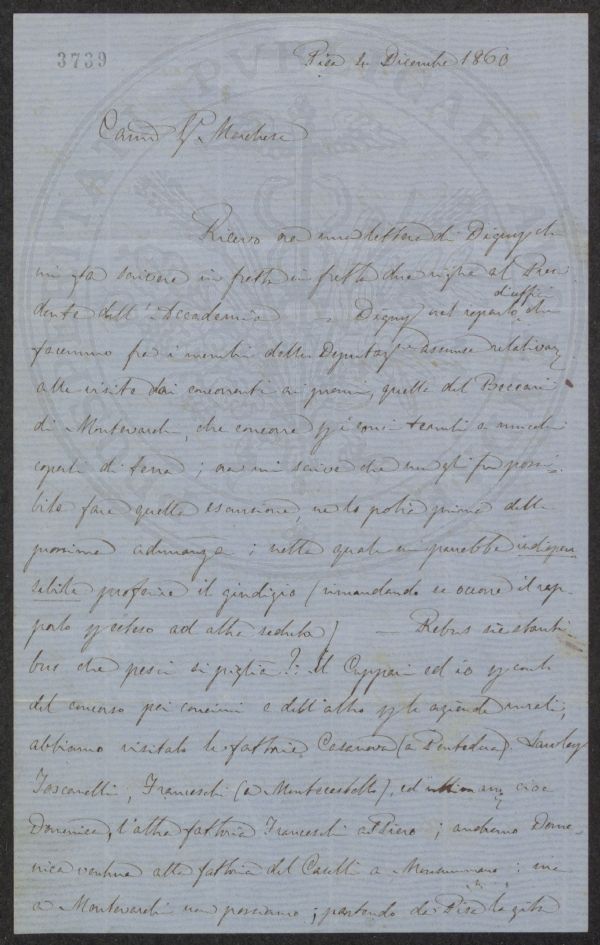 3739
Pisa Dicembre 1860
Marchese
Ricevo ora una lettera di Digny che
mi fa scrivere in fretta in fretta due righe al Presi
dente dell'Accademia — Digny nel reparto d'uffici che
facemmo fra i membri della Deputaz.ne assunse relativam.
alle visite dei concorrenti ai premi, quella del
di Montevarchi, che concorre p i concì tenuti a mucchi
coperti di terra; ora mi scrive che non gli fu possi-
bile fare quella escursione, ne lo potrà prima della
prossima adunanza; nella quale mi parrebbe indispen
sabile proferire il giudizio (rimandando se occorre il rap-
porto p esteso ad altra seduta) — Rebus sic stanti
bus che pesci si piglia?: il Cuppari ed io p conto
del concorso pei concimi e dell'altro p le aziende rurali,
abbiamo visitato le fattorie Casanova (a Pontedera)
Toscanelli, Franceschi (a Montecastello), ed cioè
Domenica, l'altra fattoria Franceschi a ; andremo Dome-
nica ventura alla fattoria del Caselli a Monsummano: ma
a Montevarchi non possiamo; partendo da Pisa la gita